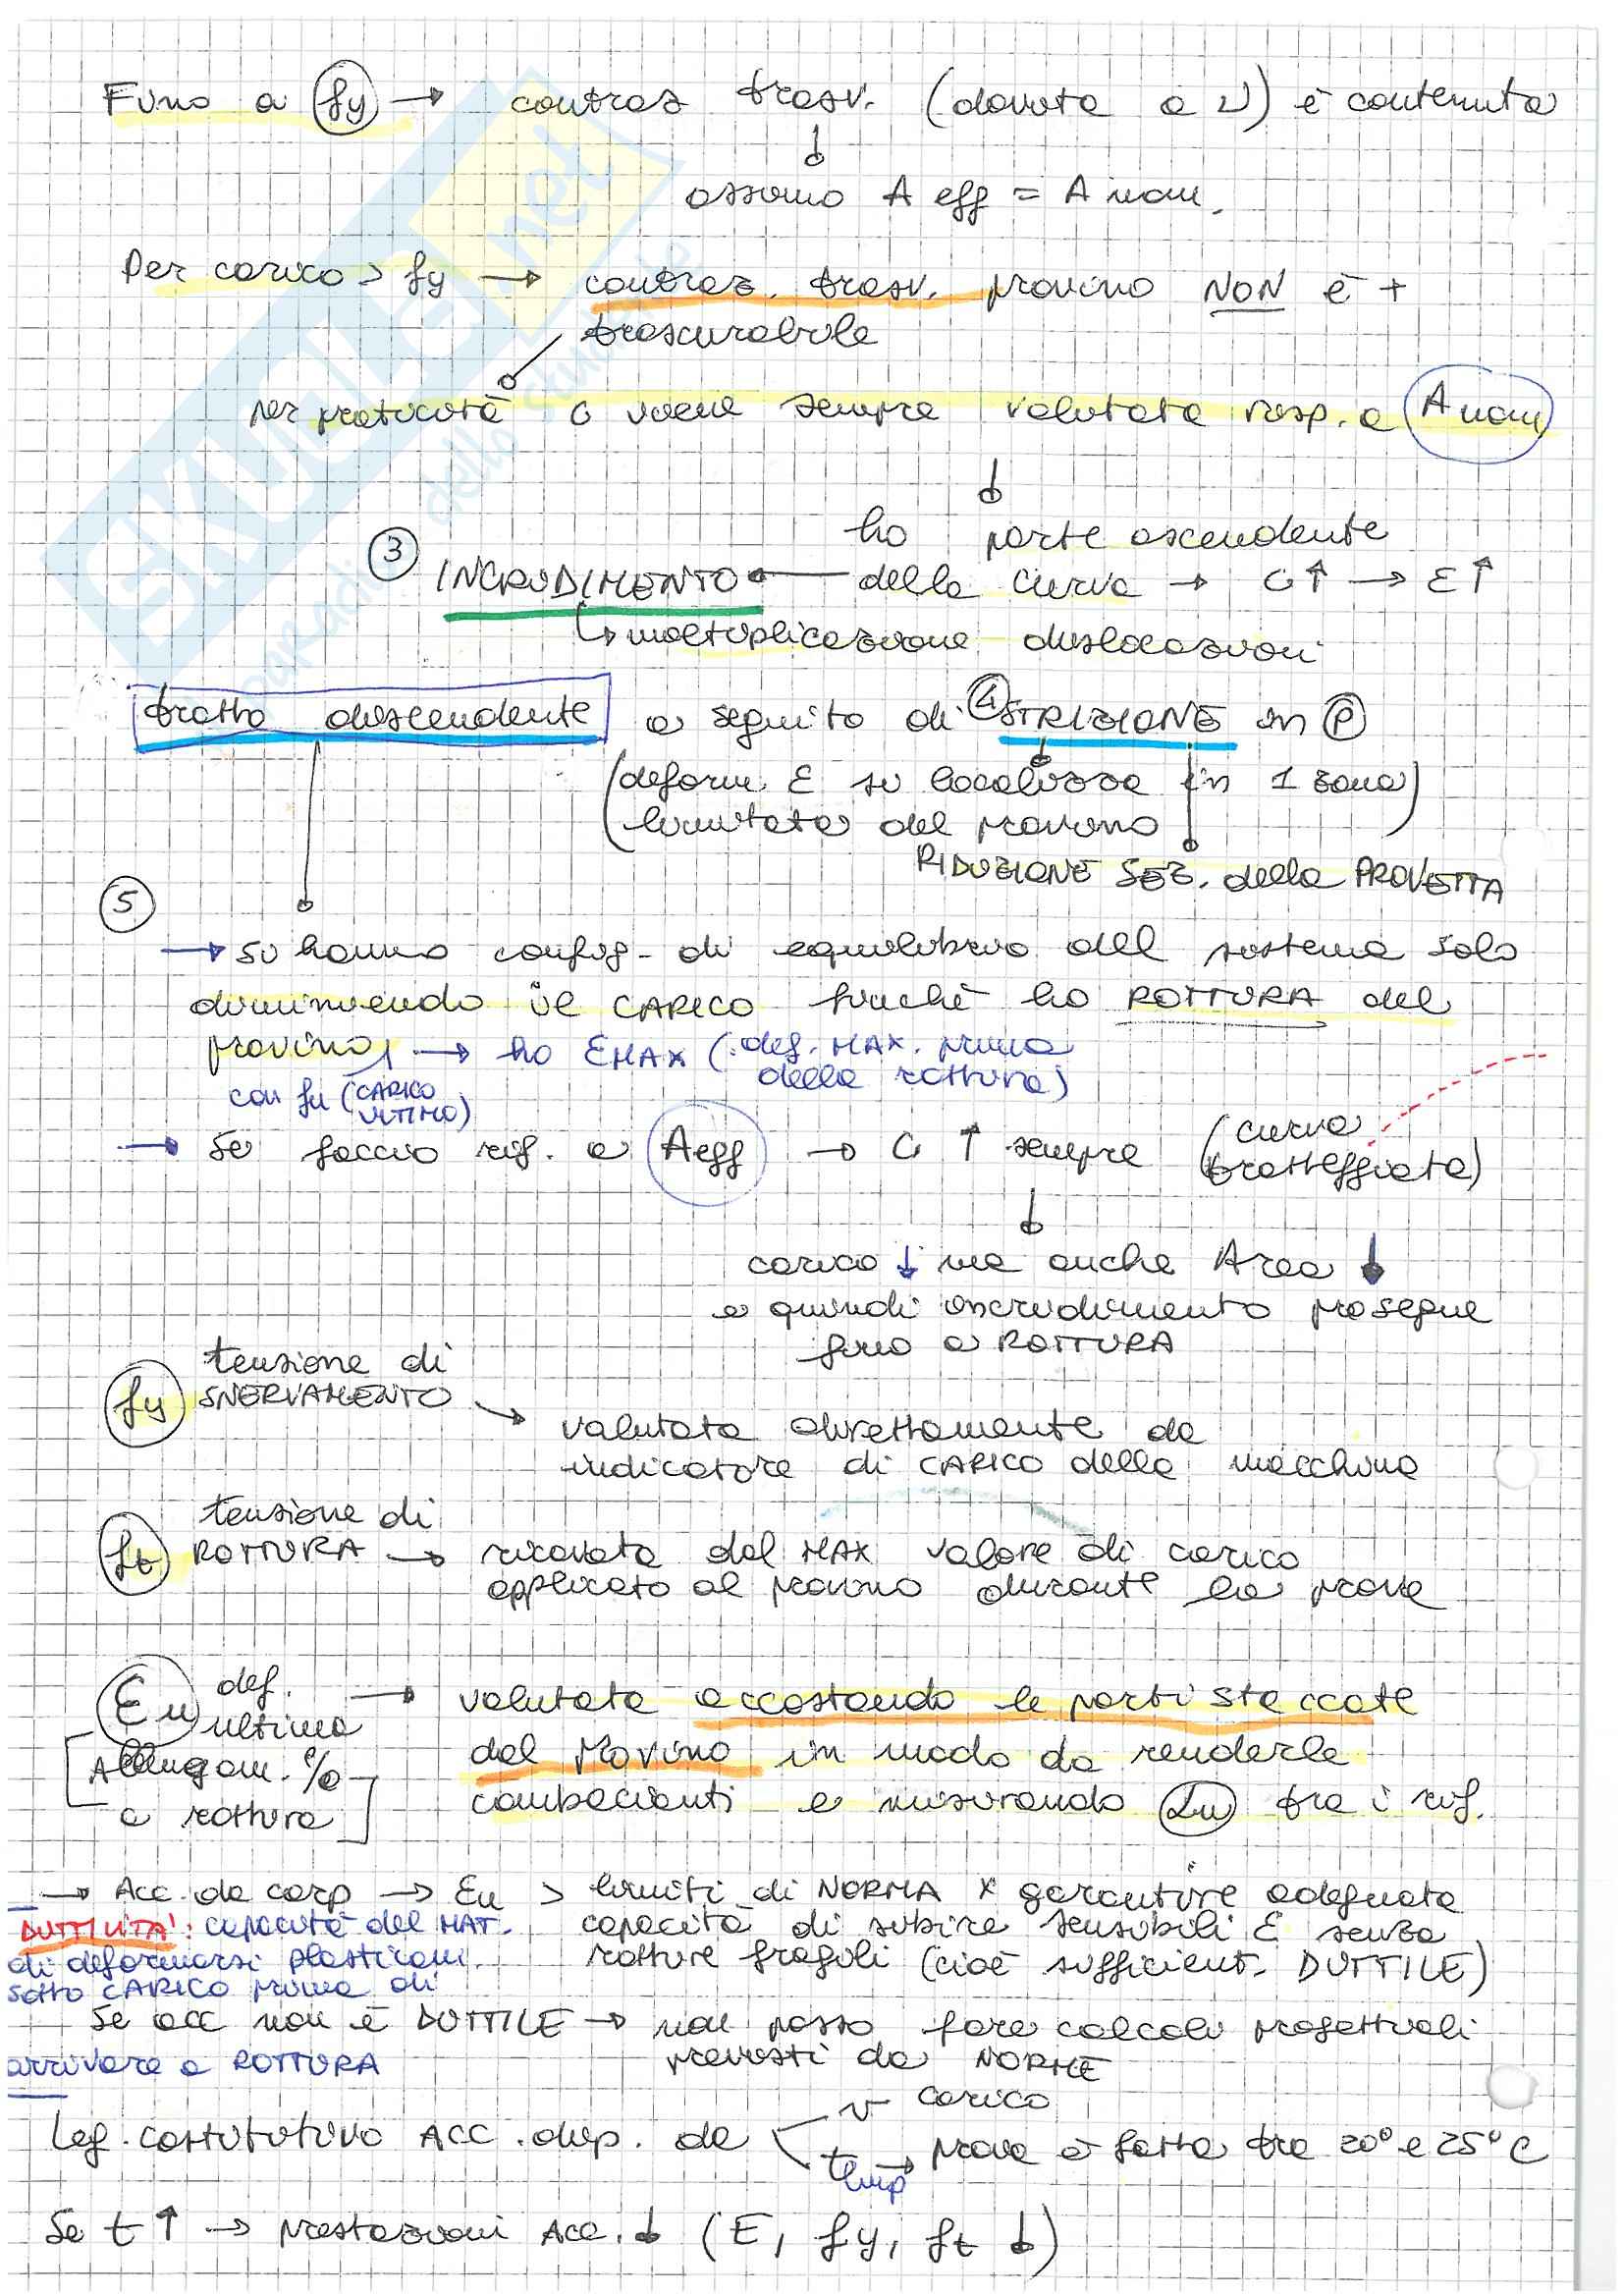 Fino a fy → contraz trasv. (dovuta a ν) è contenuta
↓
assumo A eff = A nom.
Per carico > fy → contraz. trasv. provino NON è +
trascurabile
per praticità σ viene sempre valutata risp. a A nom
↓
ho parte ascendente
③ INCRUDIMENTO ← della curva → σ↑ → ε↑
↳ moltiplicazione dislocazioni
tratto discendente a seguito di ④ STRIZIONE in P
(deform. ε si localizza in 1 zona
limitata del provino)
RIDUZIONE SEZ. della PROVETTA
⑤
→ si hanno config. di equilibrio del sistema solo
diminuendo il CARICO finché ho ROTTURA del
provino → ho εMAX (def. MAX. prima
della rottura)
con fu (CARICO
ULTIMO)
→ Se faccio rif. a Aeff → σ ↑ sempre (curva
tratteggiata)
↓
carico ↓ ma anche Area ↓
e quindi incrudimento prosegue
fino a ROTTURA
fy tensione di
SNERVAMENTO
→ valutata direttamente da
indicatore di CARICO della macchina
ft tensione di
ROTTURA → ricavata dal MAX valore di carico
applicato al provino durante la prova
Eu def.
ultima → valutata accostando le parti staccate
[Allungam. %
a rottura]
del provino in modo da renderle
combacianti e misurando Lu tra i rif.
→ Acc. da carp → Eu > limiti di NORMA x garantire adeguata
capacità di subire sensibili ε senza
rotture fragili (cioè sufficient. DUTTILE)
DUTTILITA': capacità del MAT.
di deformarsi plasticam.
sotto CARICO prima di
arrivare a ROTTURA
Se acc non è DUTTILE → non posso fare calcoli progettuali
previsti da NORME
Leg. costitutivo ACC. dip. da
v carico
temp → prova è fatta tra 20° e 25° C
Se t ↑ → prestazioni Acc. ↓ (E, fy, ft ↓)
SKUOLA.net